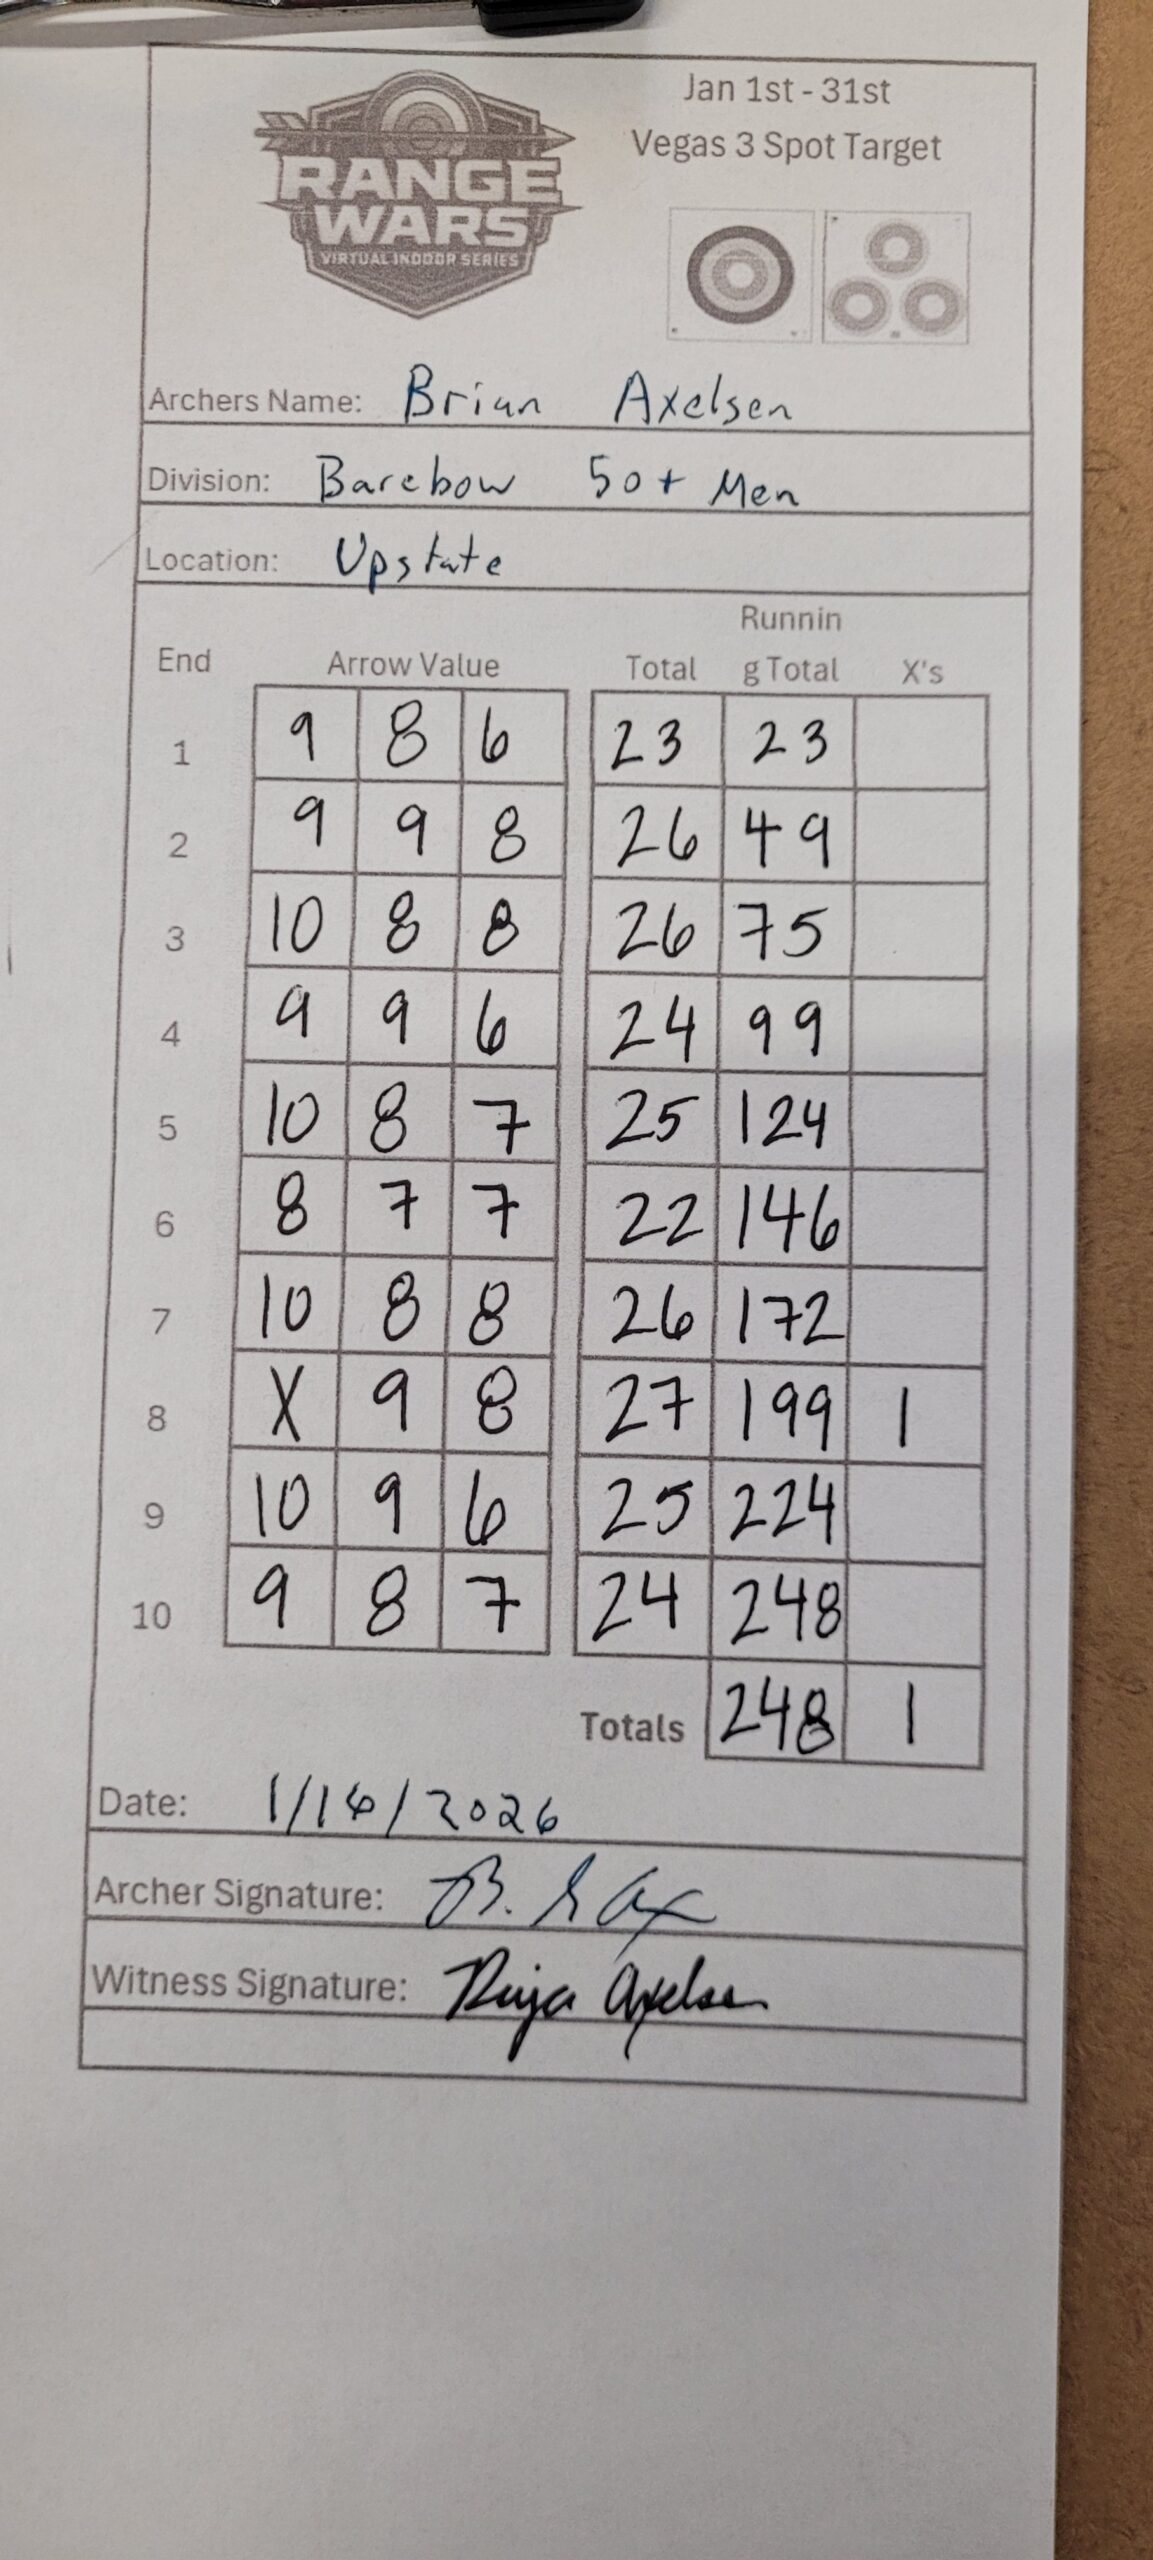 Jan 1st - 31st
Vegas 3 Spot Target
RANGE
WARS
VIRTUAL INDOOR SERIES
Archers Name: Brian Axelsen
Division: Barebow 50+ Men
Location: Upstate
Runnin
End Arrow Value Total g Total X's
1 9 8 6 23 23
2 9 9 8 26 49
3 10 8 8 26 75
4 9 9 6 24 99
5 10 8 7 25 124
6 8 7 7 22 146
7 10 8 8 26 172
8 X 9 8 27 199 1
9 10 9 6 25 224
10 9 8 7 24 248
Totals 248 1
Date: 1/16/2026
Archer Signature: B.
Witness Signature: Axelsen